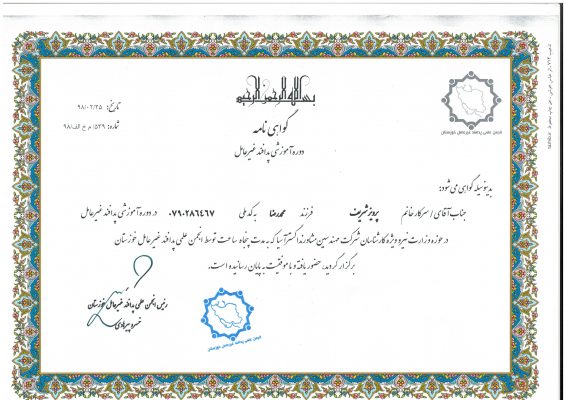 بسم الله الرحمن الرحیم
انجمن علمی پدافند غیرعامل خوزستان
تاریخ: ۹۸/۰۲/۲۵
شماره: ۱۵۲۹/م خ الف/۹۸
گواهی نامه
دوره آموزشی پدافند غیرعامل
بدینوسیله گواهی می شود:
جناب آقای / سرکار خانم پرویز شریف فرزند محمدرضا به کد ملی ۰۷۹۰۲۸۶۴۶۷ در دوره آموزشی پدافند غیرعامل
در حوزه وزارت نیرو ویژه کارشناسان شرکت مهندسین مشاور زند اکستر آسیا که به مدت پنجاه ساعت توسط انجمن علمی پدافند غیرعامل خوزستان
برگزار گردید، حضور یافته و با موفقیت به پایان رسانیده است.
رئیس انجمن علمی پدافند غیرعامل خوزستان
خسرو پیرهادی
انجمن علمی پدافند غیرعامل خوزستان